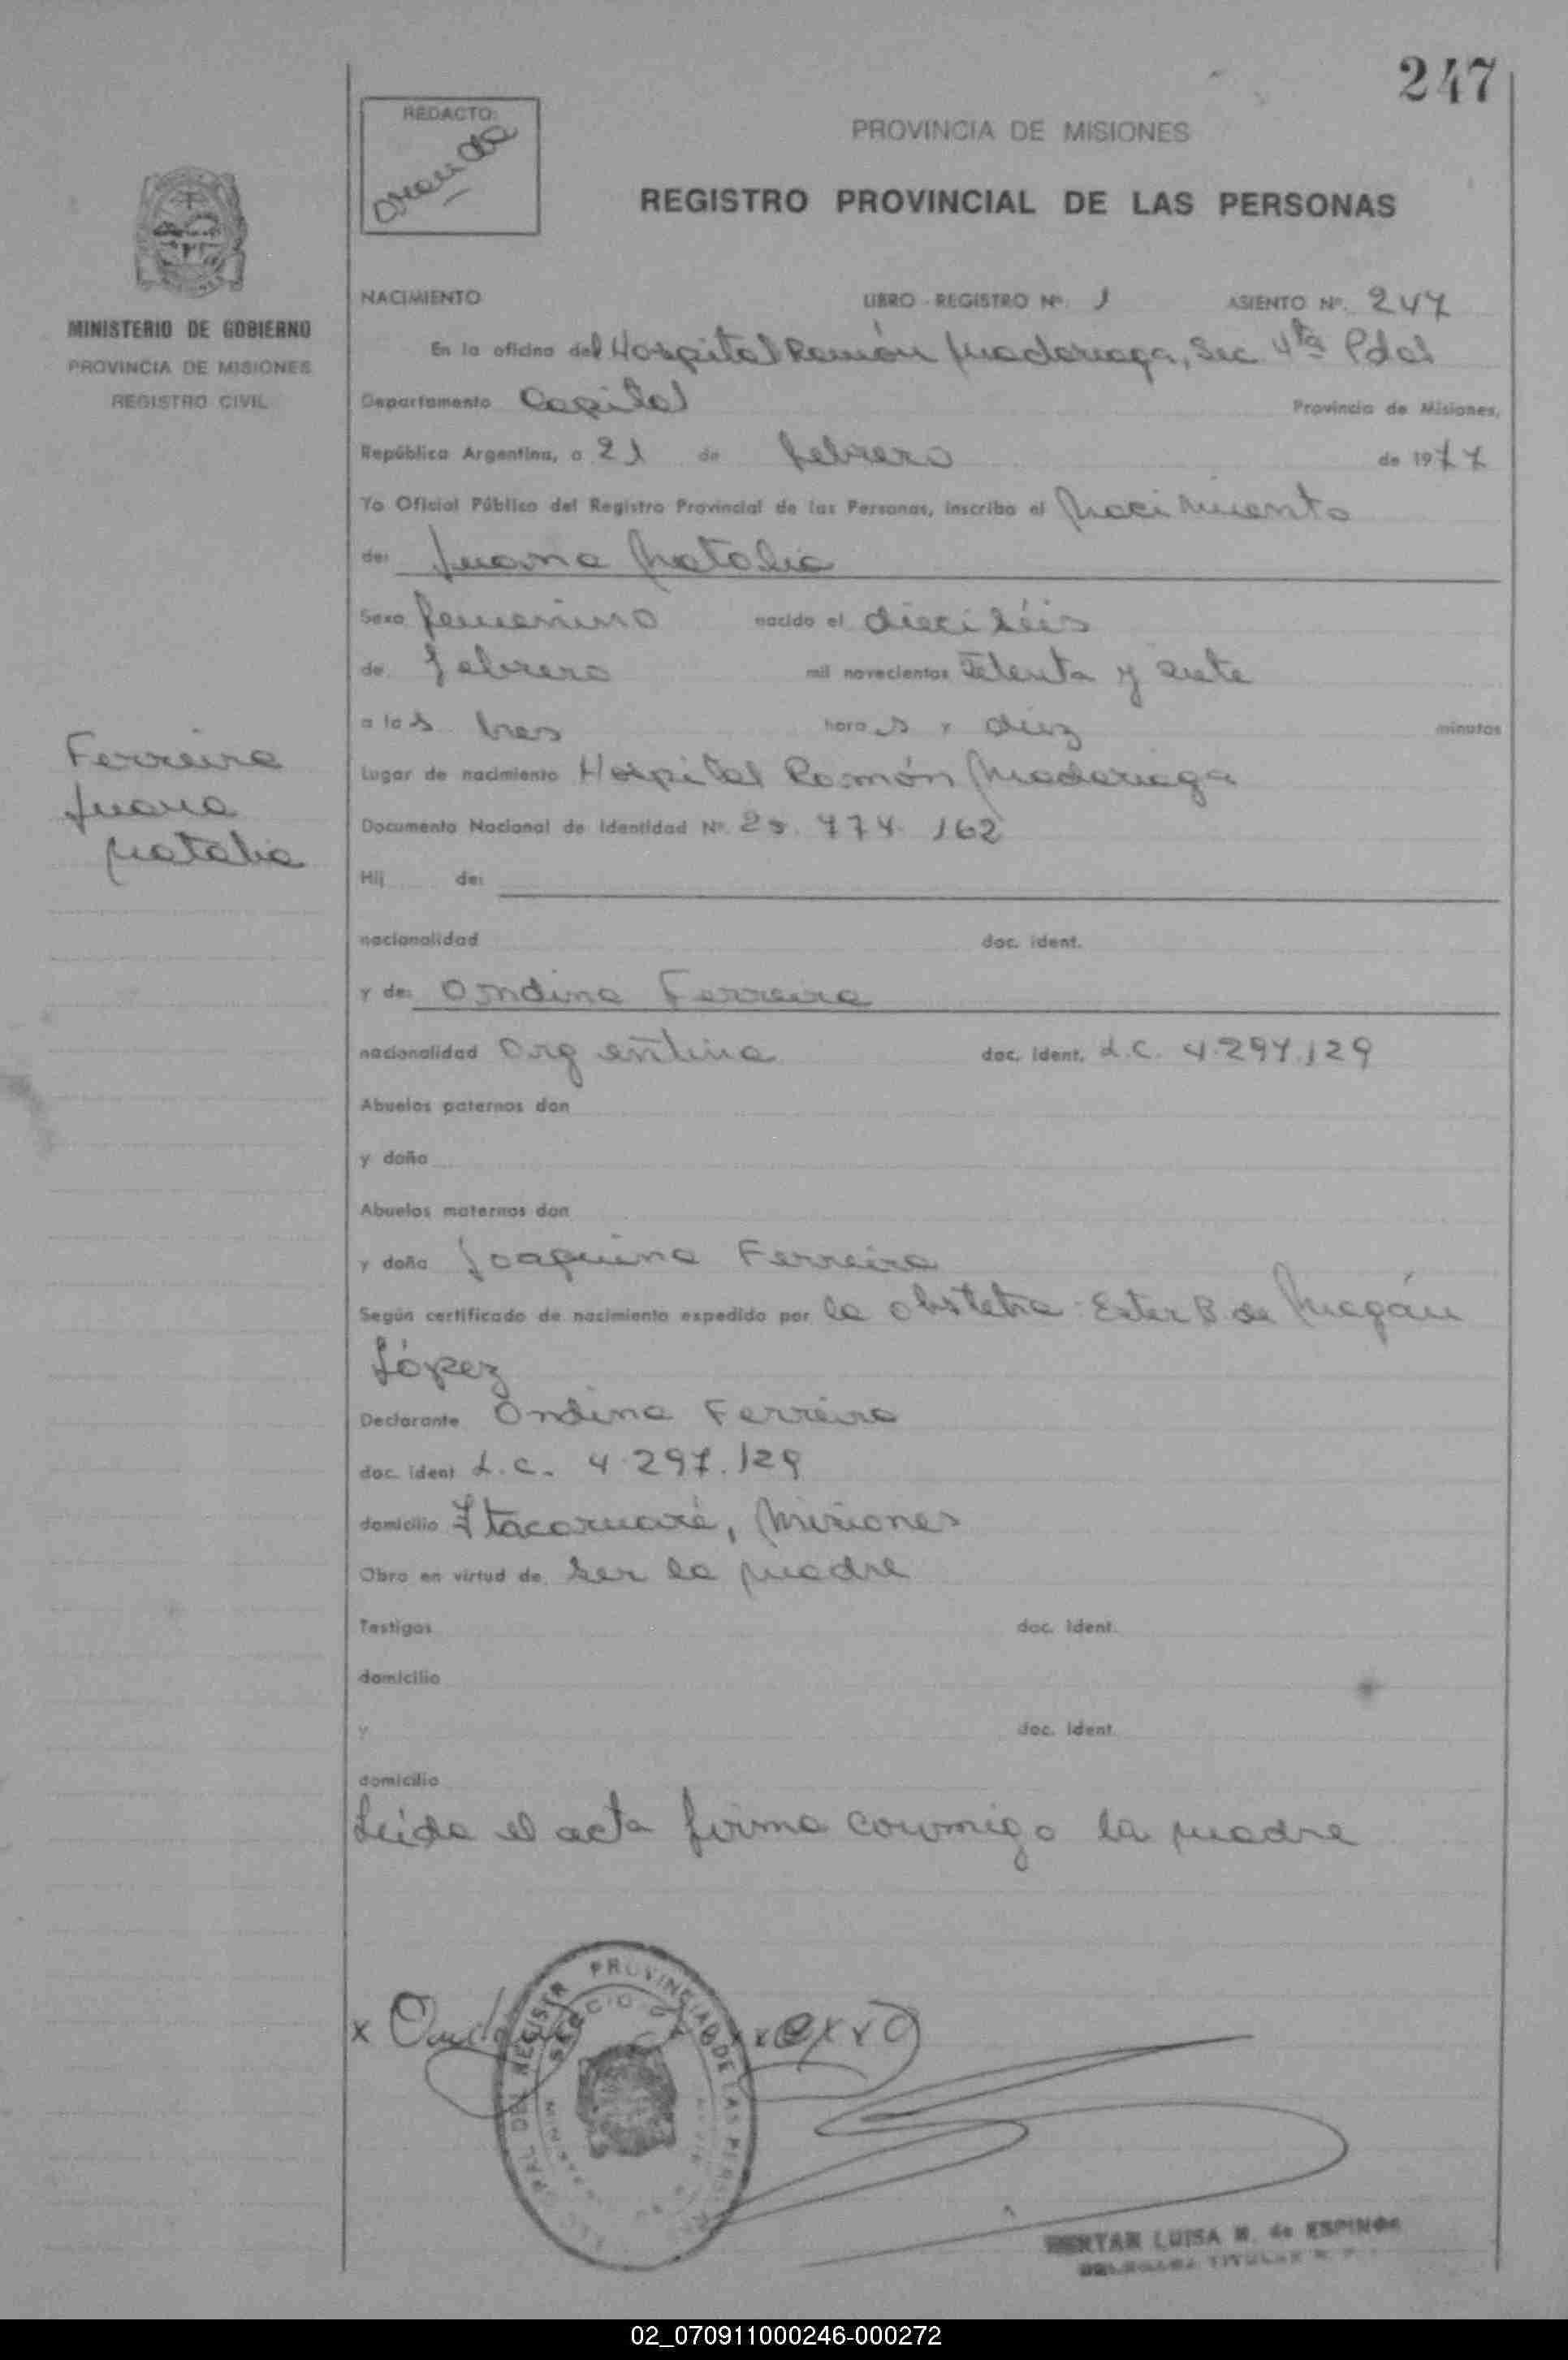 247
REDACTO:
PROVINCIA DE MISIONES
REGISTRO PROVINCIAL DE LAS PERSONAS
MINISTERIO DE GOBIERNO
PROVINCIA DE MISIONES
REGISTRO CIVIL
NACIMIENTO LIBRO - REGISTRO Nº. 1 ASIENTO Nº. 247
En la oficina del Hospital Ramón Madariaga, Sec. 4ta Pdas
Departamento Capital Provincia de Misiones,
República Argentina, a 21 de febrero de 1977
Yo Oficial Público del Registro Provincial de las Personas, inscribo el Nacimiento
de: Juana Natalia
Sexo femenino nacido el dieciséis
de febrero mil novecientos setenta y siete
a las tres horas y diez minutos
Ferreira
Juana
Natalia
Lugar de nacimiento Hospital Ramón Madariaga
Documento Nacional de Identidad Nº. 25.474.162
Hij de:
nacionalidad doc. ident.
y de: Ondina Ferreira
nacionalidad Argentina doc. ident. L.C. 4.297.129
Abuelos paternos don
y doña
Abuelos maternos don
y doña Joaquina Ferreira
Según certificado de nacimiento expedido por la obstetra Ester B de Magán
López
Declarante Ondina Ferreira
doc. ident L.C. 4.297.129
domicilio Itacaruaré, Misiones
Obra en virtud de ser la madre
Testigos doc. ident.
domicilio
y doc. ident.
domicilio
Leída el acta firma conmigo la madre
x
REGISTR PROVINCIAL DE LAS PERS
LUISA M. de ESPINOS
TITULAR
02_070911000246-000272